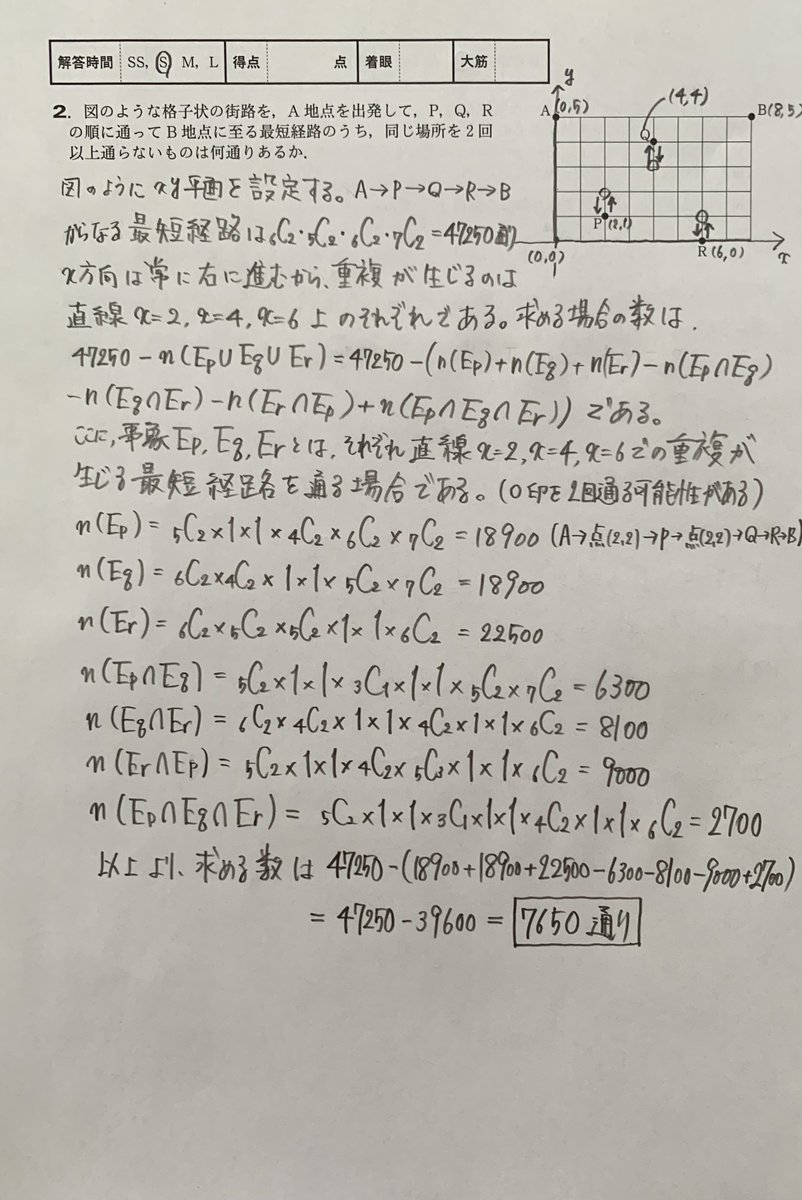 解答時間 SS, S M, L 得点 点 着眼 大筋
2. 図のような格子状の街路を，A 地点を出発して，P，Q，R
の順に通って B 地点に至る最短経路のうち，同じ場所を 2 回
以上通らないものは何通りあるか．
y
A (0,5)
(4,4)
B(8,5)
Q
P (2,1)
(0,0)
R(6,0)
x
図のようにxy平面を設定する。A→P→Q→R→B
からなる最短経路は₆C₂・₅C₂・₆C₂・₇C₂=47250通り
x方向は常に右に進むから、重複が生じるのは
直線x=2, x=4, x=6上のそれぞれである。求める場合の数は,
47250-n(Ep∪Eq∪Er)=47250-(n(Ep)+n(Eq)+n(Er)-n(Ep∩Eq)
-n(Eq∩Er)-n(Er∩Ep)+n(Ep∩Eq∩Er))である。
ここに、事象Ep, Eq, Erとは、それぞれ直線x=2, x=4, x=6での重複が
生じる最短経路を通る場合である。(○印を2回通る可能性がある)
n(Ep)= ₅C₂×1×1×₄C₂×₆C₂×₇C₂=18900 (A→点(2,2)→P→点(2,2)→Q→R→B)
n(Eq)= ₆C₂×₄C₂×1×1×₅C₂×₇C₂=18900
n(Er)= ₆C₂×₅C₂×₅C₂×1×1×₆C₂=22500
n(Ep∩Eq)= ₅C₂×1×1×₃C₁×1×1×₅C₂×₇C₂=6300
n(Eq∩Er)= ₆C₂×₄C₂×1×1×₄C₂×1×1×₆C₂=8100
n(Er∩Ep)= ₅C₂×1×1×₄C₂×₅C₃×1×1×₆C₂=9000
n(Ep∩Eq∩Er)= ₅C₂×1×1×₃C₁×1×1×₄C₂×1×1×₆C₂=2700
以上より、求める数は 47250-(18900+18900+22500-6300-8100-9000+2700)
=47250-39600=7650通り